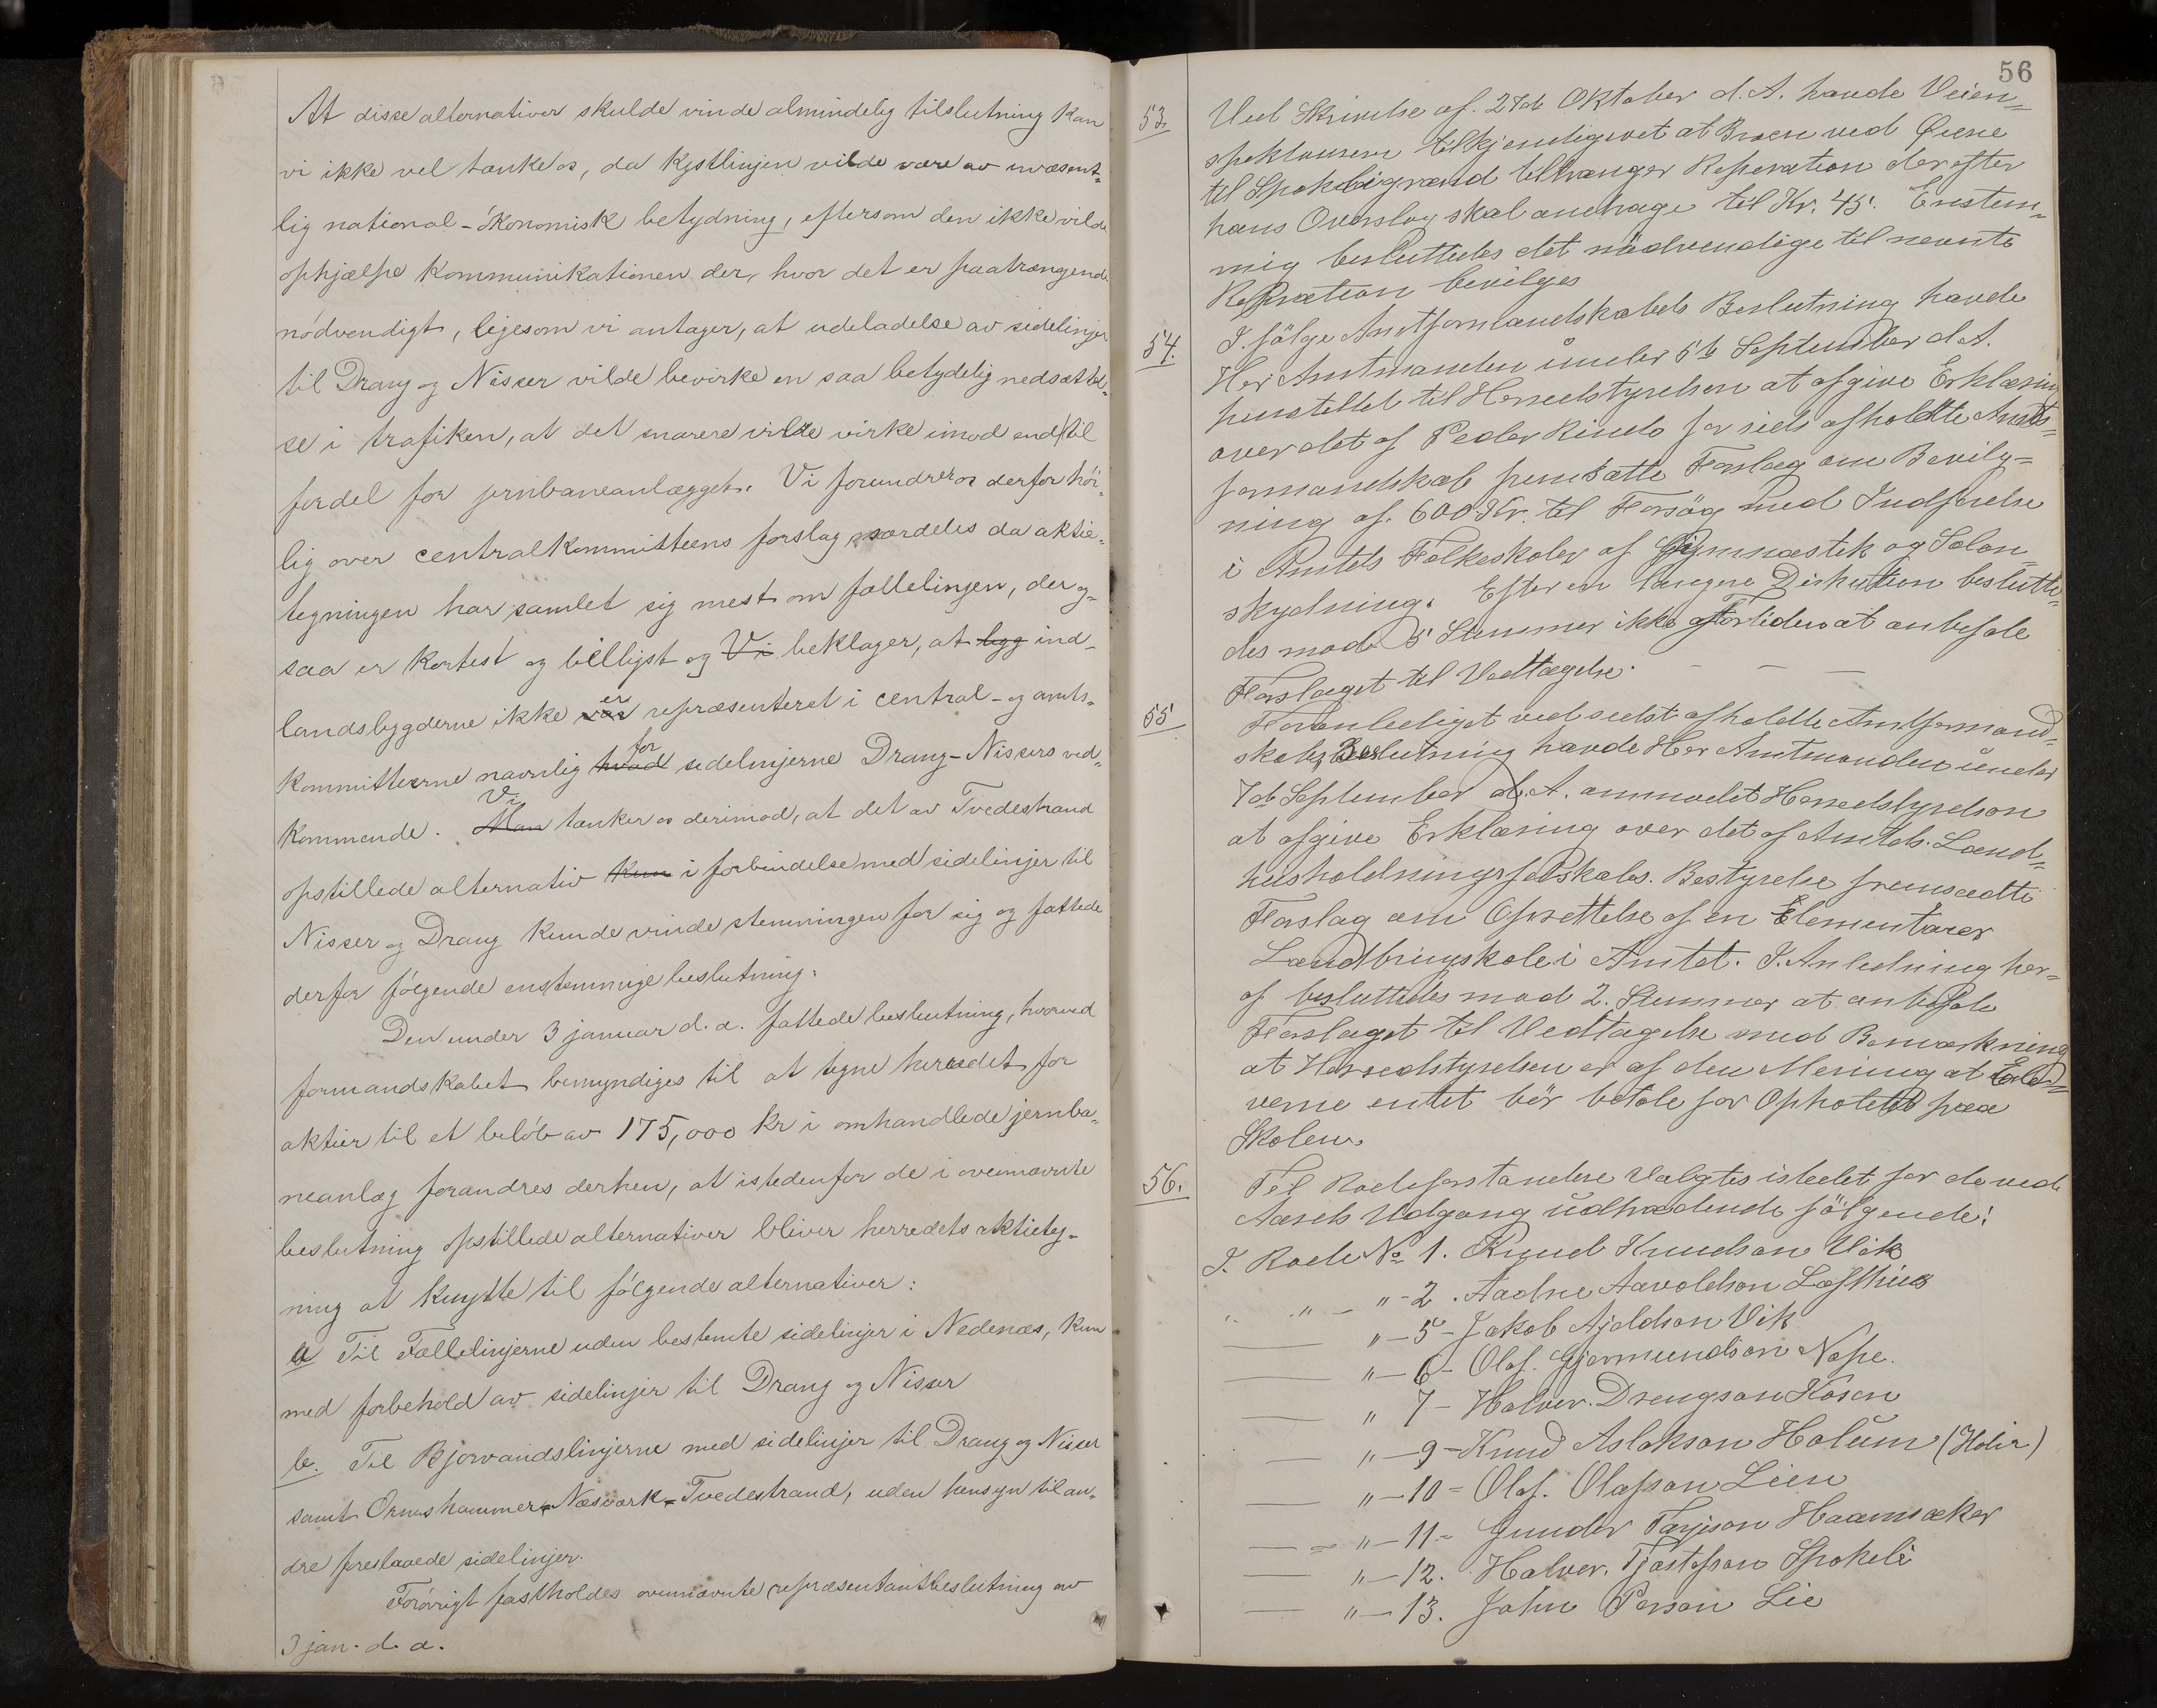 At disse alternativer skulde vinde almindelig tilslutning kan
vi ikke vel tænke os, da kystlinjen vilde være av uvæsent-
lig national-økonomisk betydning, eftersom den ikke vilde
ophjælpe kommunikationen der, hvor det er paatrængende
nødvendigt, ligesom vi antager, at udeladelse av sidelinjer
til Drang og Nisser vilde bevirke en saa betydelig nedsættel-
se i trafiken, at det snarere vilde virke imod end til
fordel for jernbaneanlægget. Vi forundrer os derfor høi-
lig over centralkommitteens forslag, særdeles da aktie-
tegningen har samlet sig mest om fællelinjen, der og-
saa er kortest og billigst og Vi beklager, at bygg ind-
landsbygderne ikke var er repræsenteret i central- og amts-
kommitteerne navnlig hvad for sidelinjerne Drang-Nissers ved-
kommende. Man Vi tænker os derimod, at det av Tvedestrand
opstillede alternativ kun i forbindelse med sidelinjer til
Nisser og Drang kunde vinde stemningen for sig og fattede
derfor følgende enstemmige beslutning:
Den under 3 januar d. a. fattede beslutning, hvorved
formandskabet bemyndiges til at tegne herredet for
aktier til et beløb av 175,000 kr i omhandlede jernba-
neanlæg forandres derhen, at istedenfor de i ovennævnte
beslutning opstillede alternativer bliver herredets aktieteg-
ning at knytte til følgende alternativer:
a Til Fællelinjerne uden bestemte sidelinjer i Nedenæs, kun
med forbehold av sidelinjer til Drang og Nisser
b. Til Bjorvandslinjerne med sidelinjer til Drang og Nisser
samt Ornshammer-Næsværk-Tvedestrand, uden hensyn til an-
dre foreslaaede sidelinjer.
Forøvrigt fastholdes ovennævnte repræsentantbeslutning av
3 jan. d. a.
56
53. Ved Skrivelse af 27de Oktober d. A. havde Veien-
spektøuren tilkjendigivet at Broen ved Øiene
til Spokeligrænd tiltrænger Reperation der efter
hans Overslag skal andrage til Kr. 45. Enstem-
mig besluttedes det nødvendige til nevnte
Repration bevilges
54. I følge Amtformandskabets Beslutning havde
Her Amtmanden under 5te September d. A.
henstillet til Herredstyrelsen at afgive Erklæring
over det af Peder Rinde for sidst afholdte Amts-
formandskab fremsatte Forslag om Bevilg-
ning af 600 Kr. til Forsøg med Indførelse
i Amtets Folkeskoler af Gymnastik og Salon-
skydning. Efter en længere Diskution beslutte-
des mod 5 Stemmer ikke for tiden at anbefale
Forslaget til Vedtagelse.
55 Foranlediget ved sidst afholdte Amtformand-
skabs Beslutning havde Her Amtmanden under
7de September d. A. anmodet Herredstyrelsen
at afgive Erklæring over det af Amtets Land-
husholdningsselskabs Bestyrelse fremsadte
Forslag om Oprettelse af en Elementærer
Landbrugskole i Amtet. I Anledning her-
af besluttedes mod 2. Stemmer at anbefale
Forslaget til Vedtagelse med Bemærkning
at Herredstyrelsen er af den Mening at Ele-
verne intet bør betale for Opholdet paa
Skolen.
56. Til Rodeforstandere valgtes istedet for de ved
Aarets Udgang udtrædende følgende:
I. Rode № 1. Knud Knudson Vik
" - " - 2. Aadne Aavoldson Lofthus
" - 5 - Jakob Ajoldson Vik
" - 6 - Olaf Gjermundson Nape.
" 7 - Halvor Drengson Kosen
" - 9 - Knud Aslakson Holum (Holia)
" - 10 - Olaf Olafson Lien
" - 11 - Gunder Tarjeson Haamsaker
" - 12. Halvor Tjostofson Spokeli
" - 13. John Person Lie